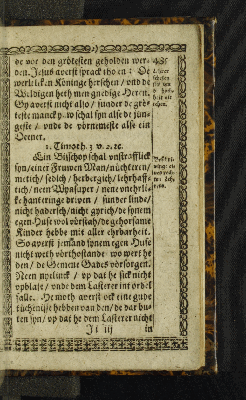 de vor den grötesten geholden wer-
den. Jesus averst sprack tho en: De
werltliken Köninge herschen / vnd de
Weldigen heth men gnedige Heren.
Gy averst nicht also / sunder de grö-
teste manck yw schal syn alse de jün-
geste / vnde de vörnemeste alse ein
Deener.
1. Timoth. 3. v. 2. ꝛc.
Ein Bisschop schal vnstrafflick
syn / einer Fruwen Man / nüchteren /
metich / sedich / herbergich / lehrhaff-
tich / neen Wynsuper / nene vnehrli-
ke hanteringe driven / sunder linde /
nicht haderich / nicht gyrich / de synem
egen Huse wol vörstah / de gehorsame
Kinder hebbe mit aller ehrbarheit.
So averst jemand synem egen Huse
nicht weth vörthostande / wo wert he
den / de Gemene Gades vörsorgen.
Neen nyelinck / vp dat he sick nicht
vpblase / vnde dem Lasterer int ordel
falle. He moth averst ock eine gude
tüchenisse hebben van den / de dar bu-
ten syn / vp dat he dem Lasterer nicht
It iij in